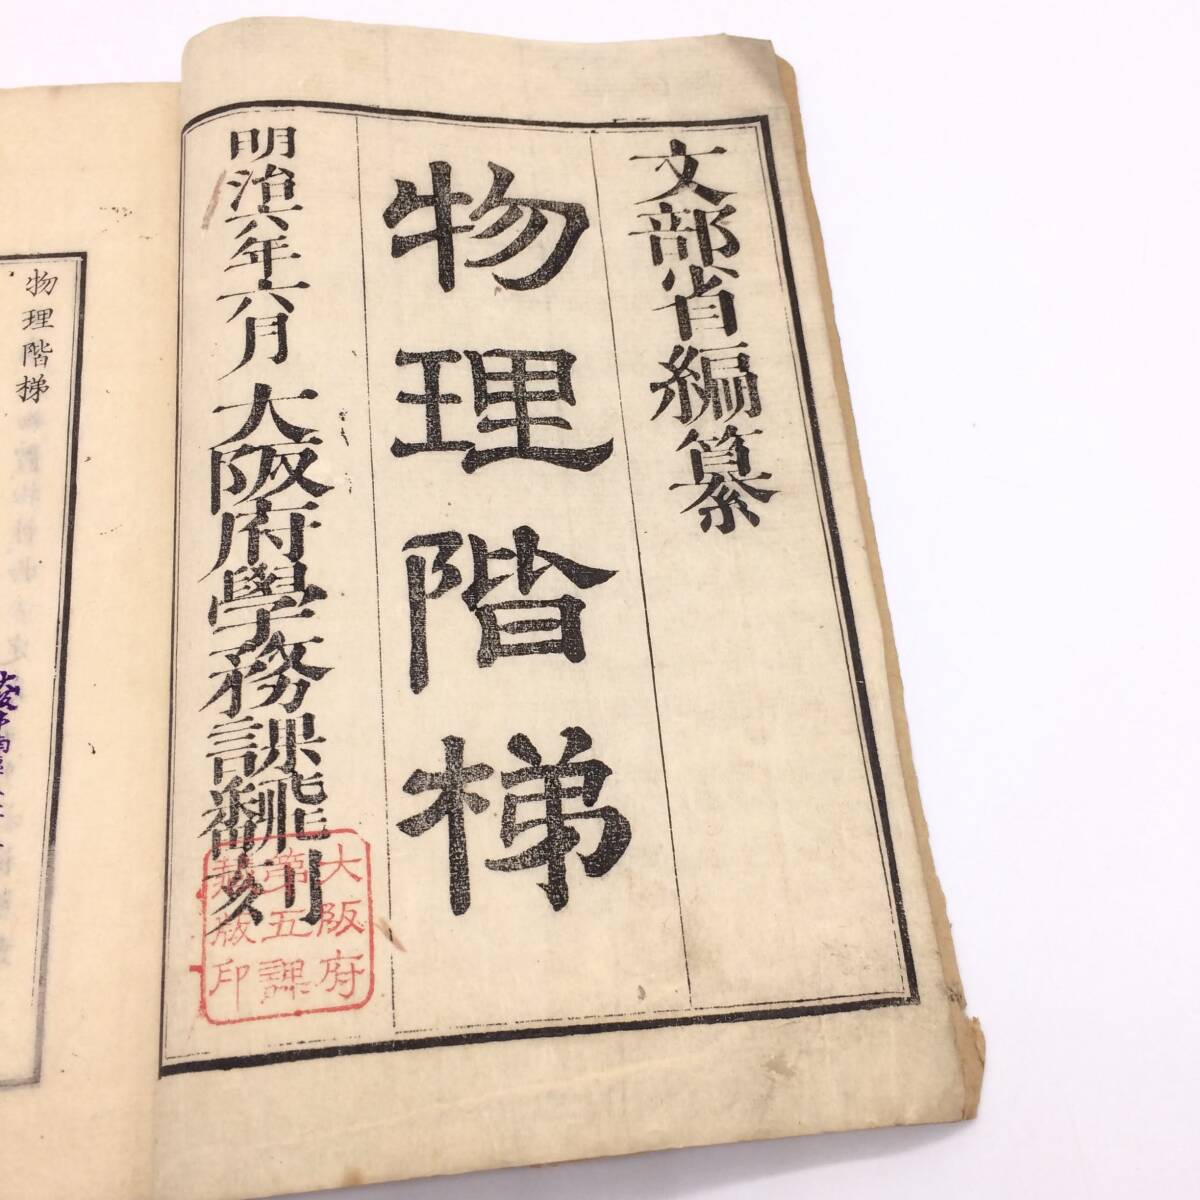 文部省編纂
物理階梯
明治六年六月 大阪府學務課飜刻
大阪府
第五課
版印
物理階梯